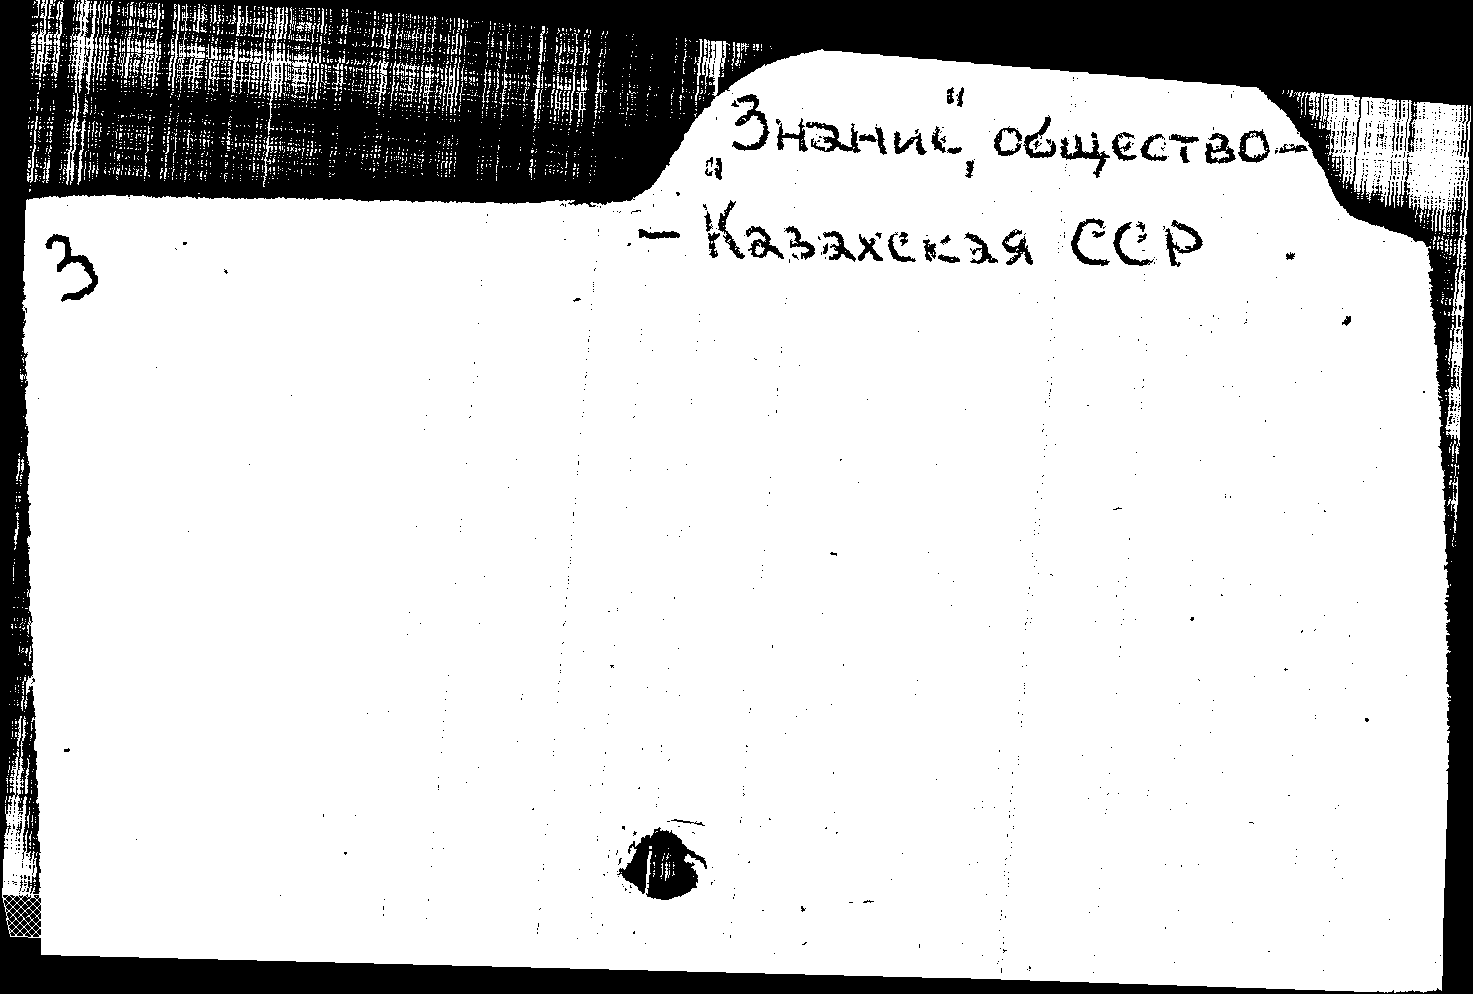 "Знание", общество-
- Казахская ССР
З